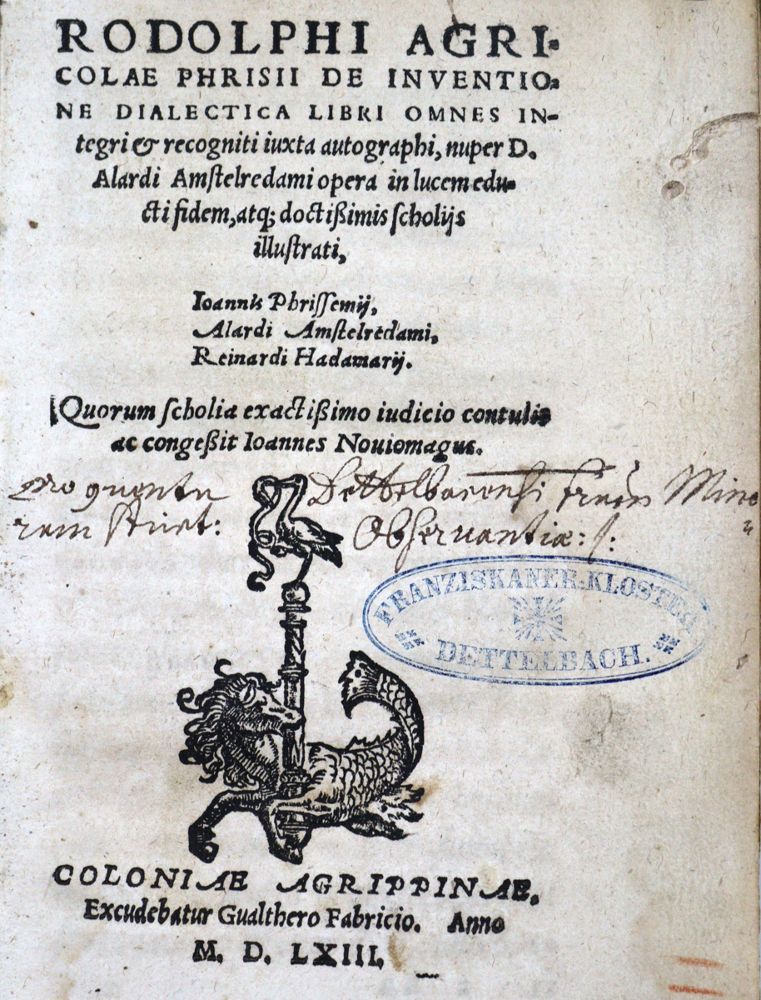 RODOLPHI AGRI-
COLAE PHRISII DE INVENTIO-
NE DIALECTICA LIBRI OMNES IN-
tegri & recogniti iuxta autographi, nuper D.
Alardi Amstelredami opera in lucem edu-
cti fidem, atq; doctißimis scholijs
illustrati,
Ioannis Phrissemij,
Alardi Amstelredami,
Reinardi Hadamarij.
Quorum scholia exactißimo iudicio contulit
ac congeßit Ioannes Nouiomagus.
pro conventu Dettelbacensi fratrum Mino
rum strict: Observantiæ:
FRANZISKANER-KLOSTER
DETTELBACH.
COLONIAE AGRIPPINAE.
Excudebatur Gualthero Fabricio. Anno
M. D. LXIII.